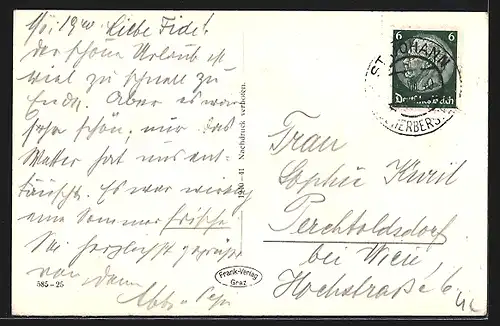 Liebe Fide!
der schöne Urlaub ist
viel zu schnell zu
Ende. Aber es war
sehr schön, nur das
Wetter hat uns ent-
täuscht. Es war wenig
eine Sommerfrische
Sei herzlichst gegrüßt
von dem
585-25
1940-41 Nachdruck verboten.
Frank-Verlag
Graz
6 6
Deutsches Reich
ST. JOHANN
HERBERST
Frau
Sophie
Perchtoldsdorf
bei Wien
Hochstraße 6